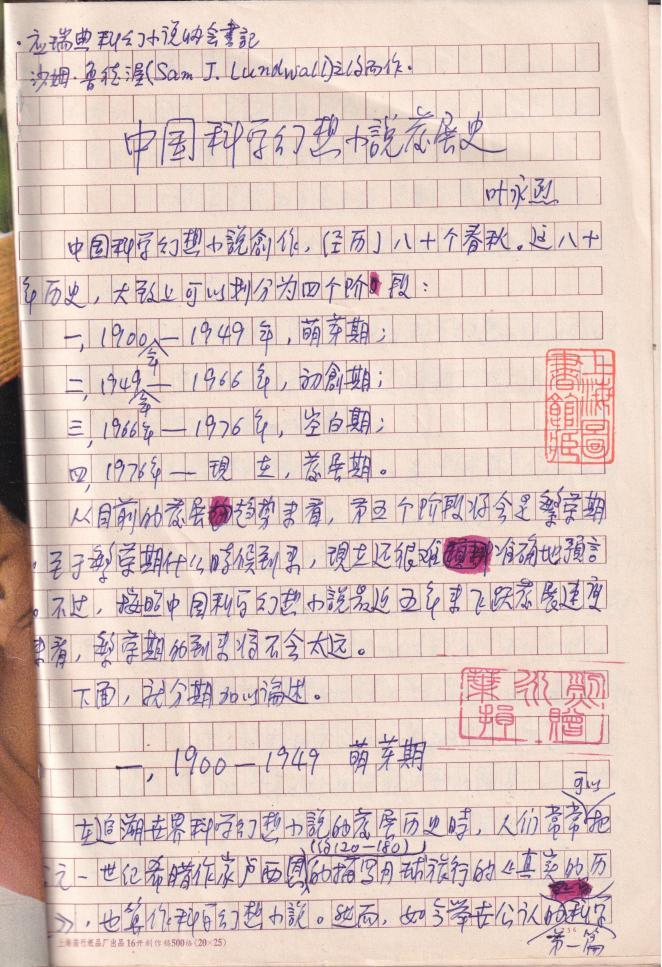 ·应瑞典科幻小说协会書記
沙姆·鲁德渥(Sam J. Lundwall)之约而作.
中国科学幻想小說発展史
叶永烈
中国科学幻想小說創作,经历了八十个春秋。这八十
年历史,大致上可以划分为四个阶段:
一,1900年—1949年,萌芽期;
二,1949年—1966年,初創期;
三,1966年—1976年,空白期;
四,1976年—現在,発展期。
从目前的発展趋势来看,第五个阶段将会是繁荣期
。至于繁荣期什么時候到来,現在还很难准确地預言
。不过,按照中国科学幻想小說最近五年来飞跃発展速度
来看,繁荣期的到来将不会太远。
下面,就分期加以論述。
一,1900—1949 萌芽期
可以
在追溯世界科学幻想小說的発展历史時,人们常常把
(约120—180)
元一世纪希腊作家卢西恩的描写月球旅行的《真实的历
》,也算作科学幻想小說。然而,如今举世公认的科学
第一篇
上海图書館藏
葉永烈捐贈
上海 纸品厂出品 16开创作稿500格(20×25)